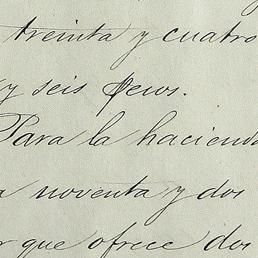 treinta y cuatro
y seis pesos.
Para la hacienda
noventa y dos
que ofrece dos